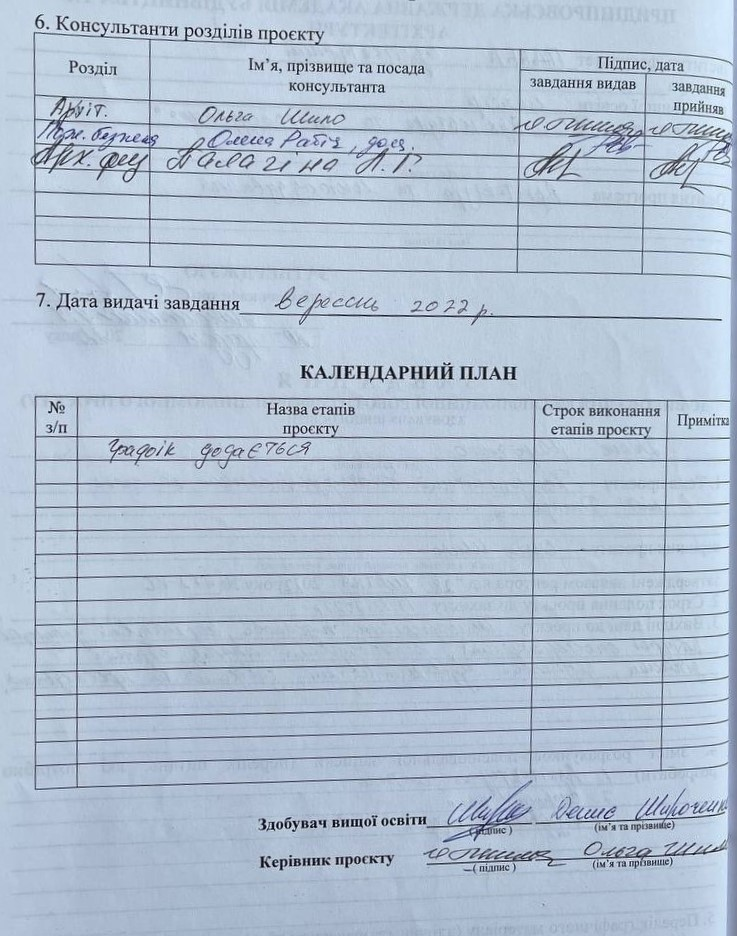 6. Консультанти розділів проєкту
Розділ Ім’я, прізвище та посада консультанта Підпис, дата
завдання видав завдання прийняв
Архіт. Ольга Шило
Олена Рабіч, доц.
Арх. физ Палагіна А.Г.
7. Дата видачі завдання вересень 2022 р.
КАЛЕНДАРНИЙ ПЛАН
№ з/п Назва етапів проєкту Строк виконання етапів проєкту Примітка
Графік додається
Здобувач вищої освіти Денис Широченко
( підпис ) (ім’я та прізвище)
Керівник проєкту Ольга Шило
( підпис ) (ім’я та прізвище)